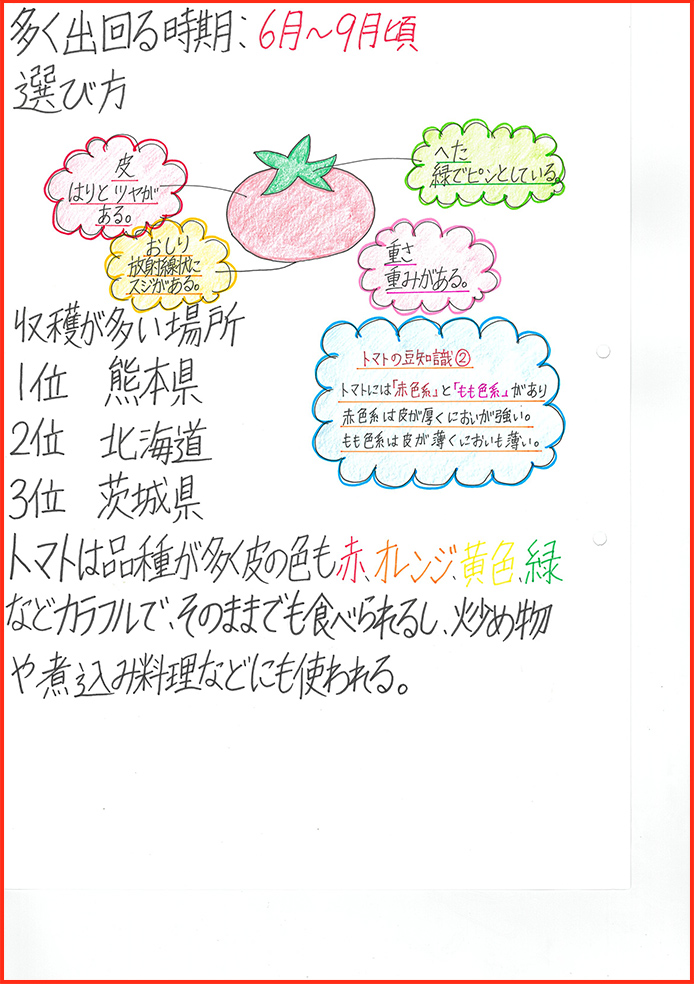 多く出回る時期：6月～9月頃
選び方
皮
はりとツヤが
ある。
へた
緑でピンとしている。
おしり
放射線状に
スジがある。
重さ
重みがある。
収穫が多い場所
1位 熊本県
2位 北海道
3位 茨城県
トマトの豆知識②
トマトには「赤色系」と「もも色系」があり
赤色系は皮が厚くにおいが強い。
もも色系は皮が薄くにおいも薄い。
トマトは品種が多く皮の色も赤、オレンジ、黄色、緑
などカラフルで、そのままでも食べられるし、炒め物
や煮込み料理などにも使われる。